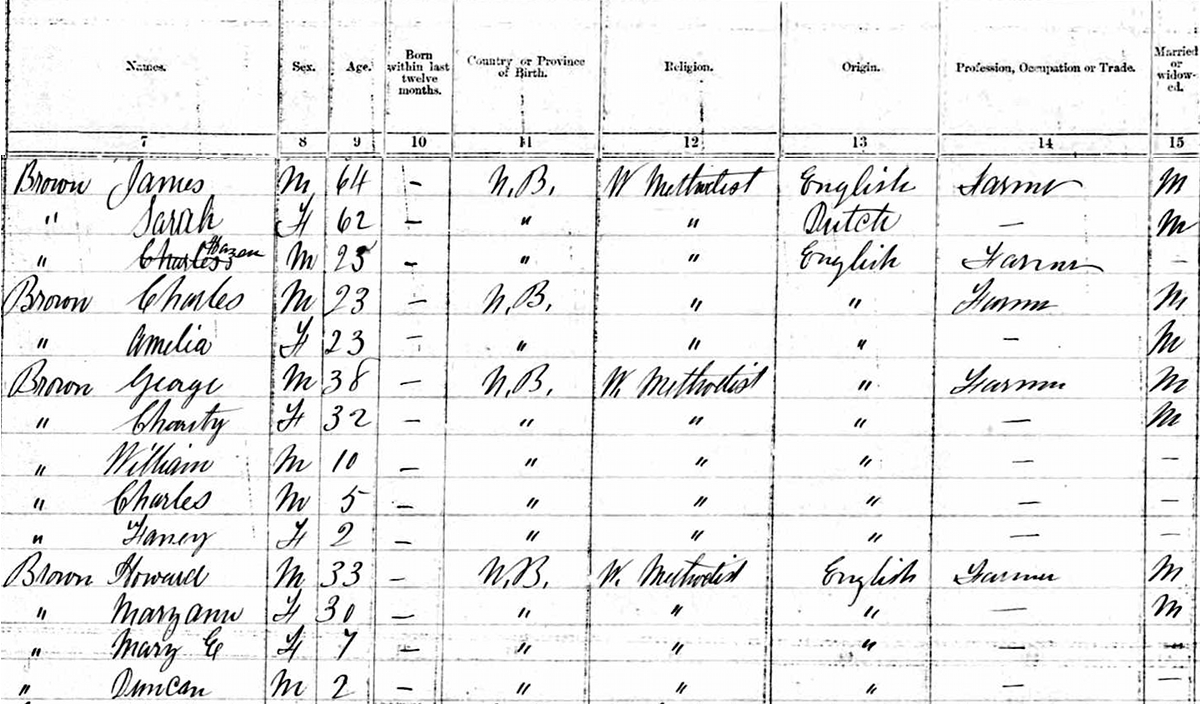 Names. Sex. Age. Born within last twelve months. Country or Province of Birth. Religion. Origin. Profession, Occupation or Trade. Married or widow-ed.
7 8 9 10 11 12 13 14 15
Brown James M 64 – N.B. W Methodist English Farmer M
" Sarah F 62 – " " Dutch — M
" Charles Hazen M 25 – " " English Farmer –
Brown Charles M 23 – N.B. " " Farmer M
" Amelia F 23 – " " " – M
Brown George M 38 – N.B. W. Methodist " Farmer M
" Charity F 32 – " " " — M
" William M 10 – " " " — –
" Charles M 5 – " " " — –
" Faney F 2 – " " " — –
Brown Howard M 33 – N.B. W. Methodist English Farmer M
" Mary ann F 30 – " " " — M
" Mary E F 7 – " " " — –
" Duncan M 2 – " " " — –